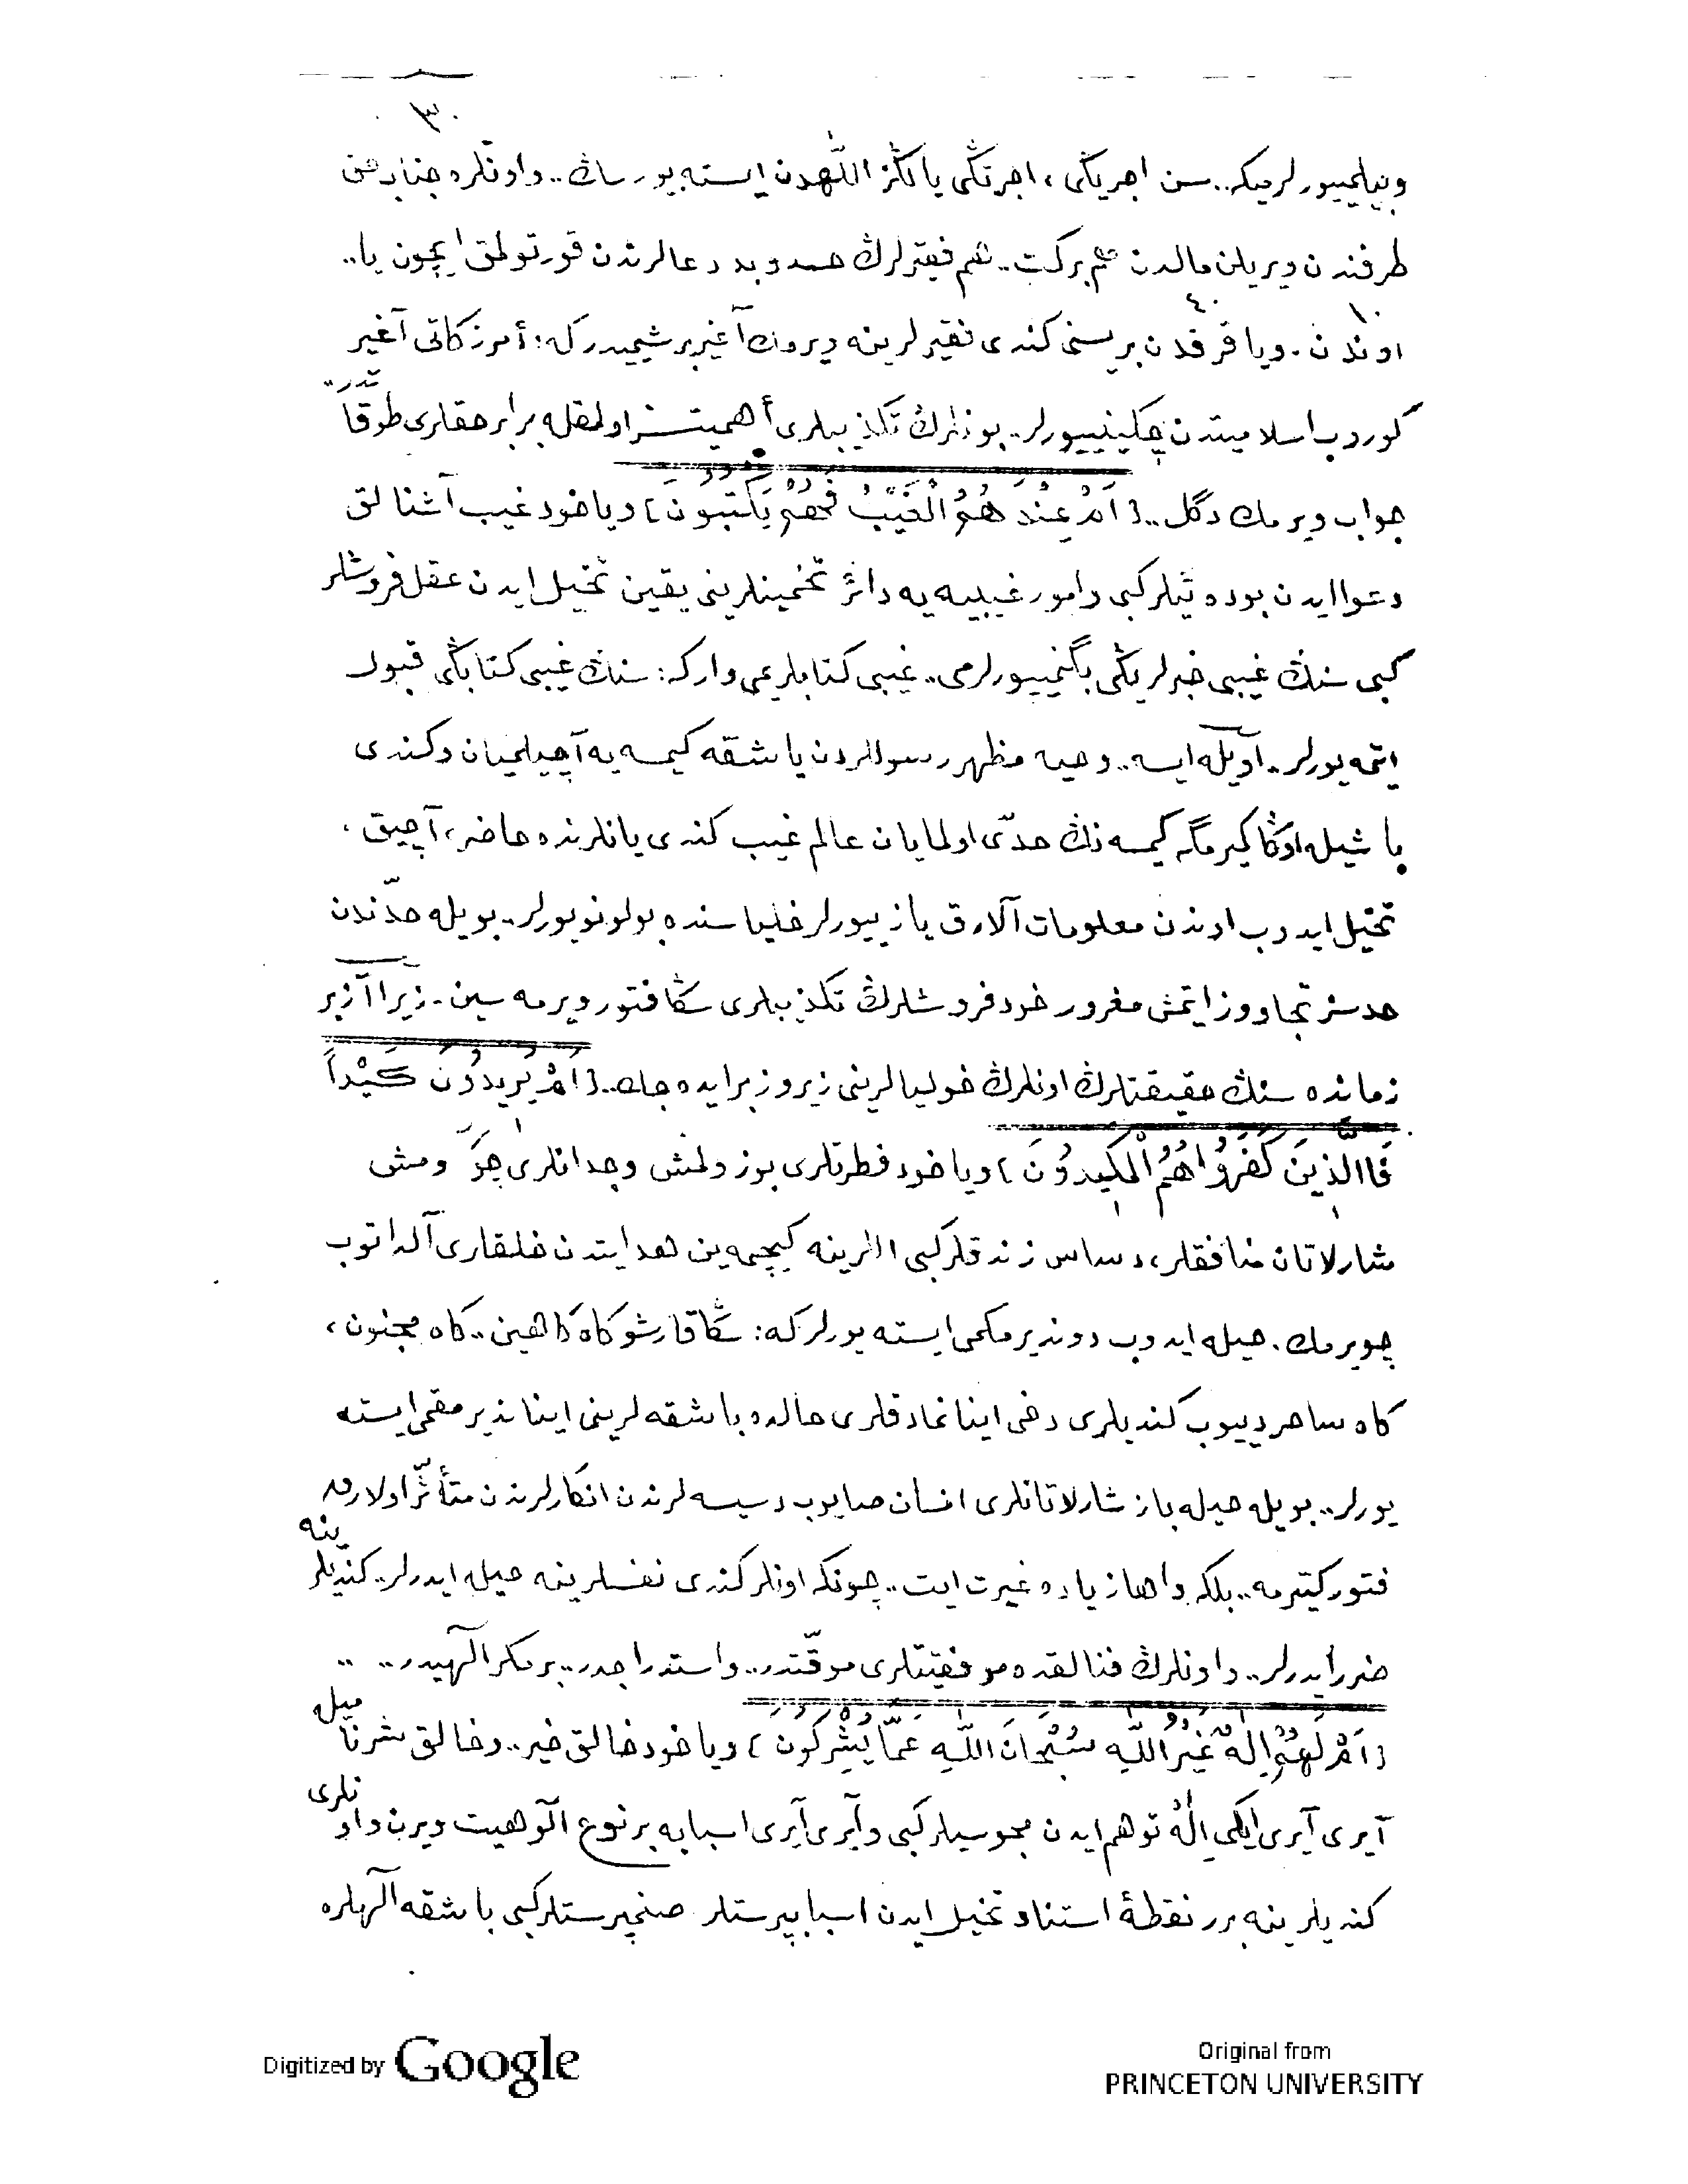 ٣٠
وبیلمییورلرمیکه.. سن اجریڭی، اجرتڭی یالڭز اللّٰهدن ایسته‌یورساڭ.. واونلره جناب حق
طرفندن ویریلن مالدن هم برکت.. هم فقیرلرڭ حسد و بددعالرندن قورتولمق ایچون یا..
١٠ ٤٠
اوندن. ویا قرقدن بریسنی کندی فقیرلرینه ویرمك آغیر بر شیمیدرکه: أمر زکاتی آغیر
کوروب اسلامیتدن چکینییورلر.. بونلرڭ تکذیبلری أهمیتسز اولمقله برابر حقلری طوقاتدر..
جواب ویرمك دگل.. [اَمْ عِنْدَهُمُ الْغَيْبُ فَهُمْ يَكْتُبُونَ] ویاخود غیب آشنالق
دعوا ایدن بوده‌ئیلر کبی وامور غیبیه‌یه دائر تخمینلرینی یقین تخیل ایدن عقل فروشلر
کبی سنڭ غیبی خبرلریڭی بگنمییورلرمی.. غیبی کتابلریمی وارکه: سنڭ غیبی کتابڭی قبول
ایتمه‌یورلر.. اویله ایسه.. وحیه مظهر رسوللردن باشقه کیمسه‌یه آچیلمیان وکندی
باشیله اوڭا کیرمگه کیمسه‌نڭ حدّی اولمایان عالم غیب کندی یانلرنده حاضر، آچیق،
تخیل ایدوب اوندن معلومات آلارق یازییورلر خلیاسنده بولونویورلر.. بویله حدّندن
حدسز تجاوز ایتمش مغرور خودفروشلرڭ تکذیبلری سڭا فتور ویرمه‌سین. زیرا آز بر
زمانده سنڭ حقیقتلرڭ اونلرڭ خولیالرینی زیر و زبر ایده‌جك.. [اَمْ يُرِيدُونَ كَيْداً
فَاالَّذِينَ كَفَرُوا هُمُ الْمَكِيدُونَ] ویاخود فطرتلری بوزولمش وجدانلری چورومش
شارلاتان منافقلر، دساس زندقلر کبی اللرینه کیچمه‌ین هدایتدن خلقلری آلداتوب
چویرمك. حیله ایدوب دوندیرمکمی ایسته‌یورلرکه: سڭا قارشو کاه کاهن.. کاه مجنون،
کاه ساحر دییوب کندیلری دخی اینانمادقلری حالده باشقه‌لرینی ایناندیرمقمی ایسته
یورلر.. بویله حیله‌باز شارلاتانلری انسان صایوب دسیسه‌لرندن انکارلرندن متأثّر اولارق
فتور کتیرمه.. بلکه داها زیاده غیرت ایت.. چونکه اونلر کندی نفسلرینه حیله ایدرلر.. کندیلرینه
ضرر ایدرلر.. واونلرڭ فنالقده موفقیتلری موقّتدر.. واستدراجدر.. بر مکر الٓهیدر..
[اَمْ لَهُمْ اِلٰهٌ غَيْرُ اللّٰهِ سُبْحَانَ اللّٰهِ عَمَّا يُشْرِكُونَ] ویاخود خالق خیر.. وخالق شر نامیله
آیری آیری ایکی اِلٰه توهم ایدن مجوسیلر کبی و آیری آیری اسبابه بر نوع الٓوهیت ویرن و اونلری
کندیلرینه برر نقطۀ استناد تخیل ایدن اسباب‌پرستلر صنم‌پرستلر کبی باشقه الٓهلره
Digitized by Google
Original from
PRINCETON UNIVERSITY